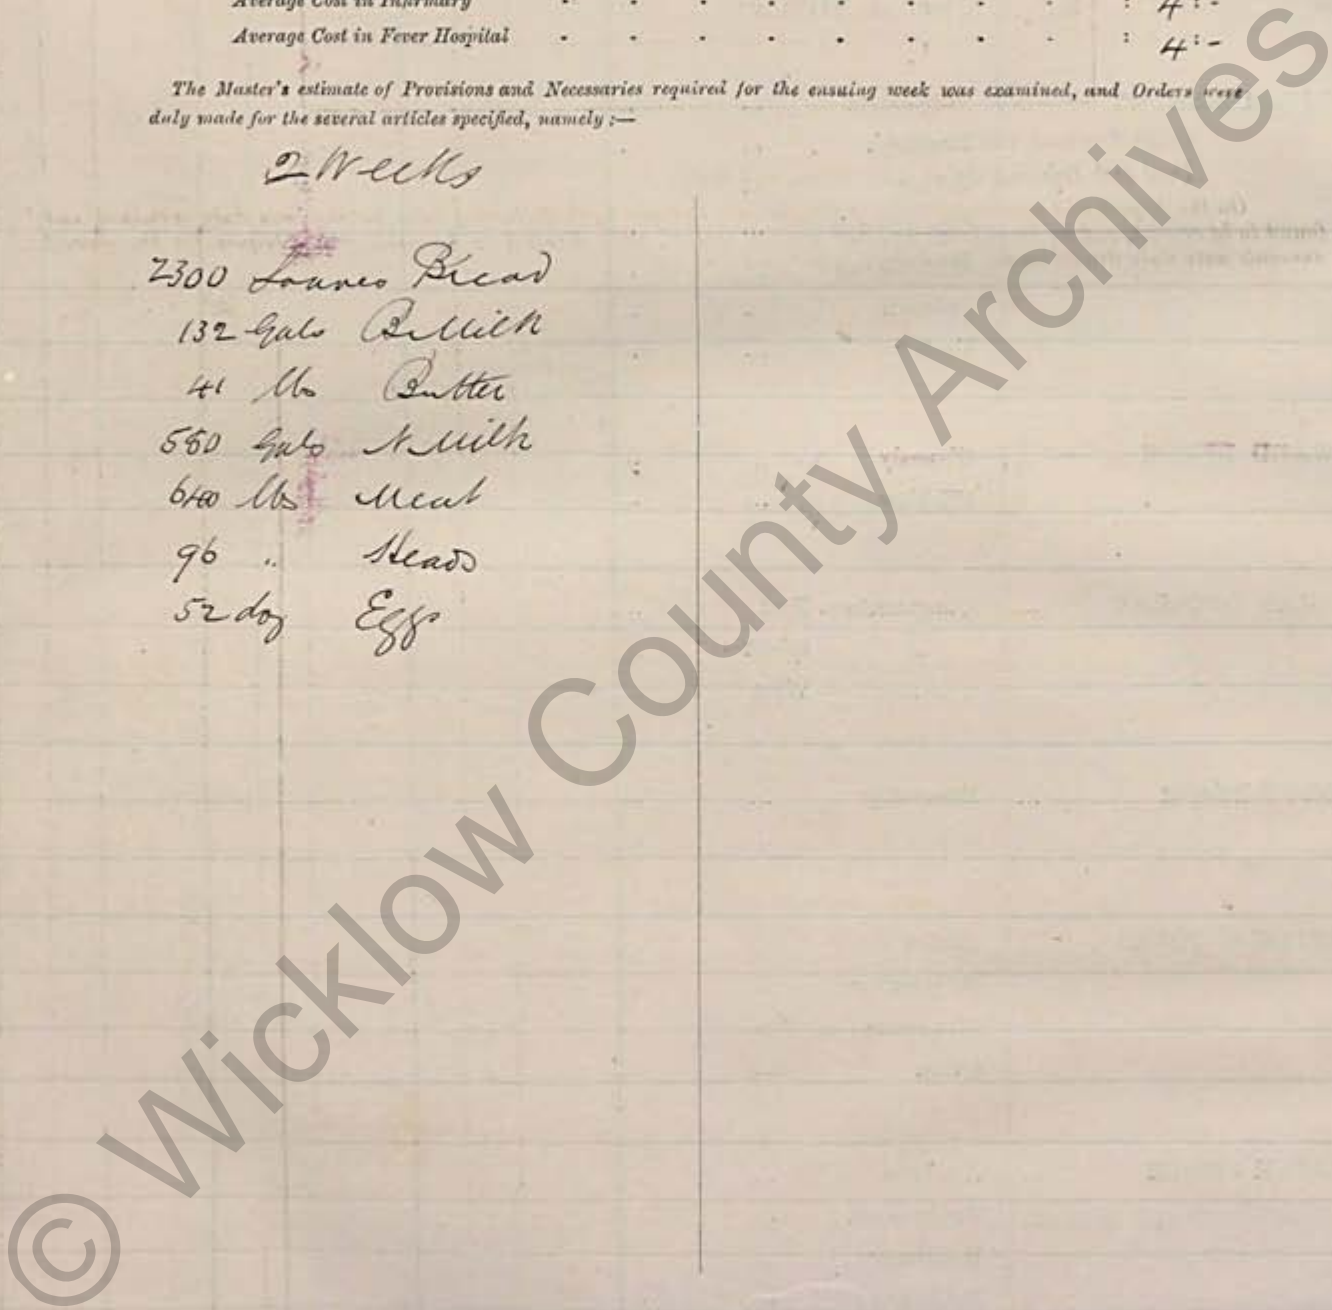 Average Cost in Infirmary : 4 : -
Average Cost in Fever Hospital : 4 : -
The Master's estimate of Provisions and Necessaries required for the ensuing week was examined, and Orders were
duly made for the several articles specified, namely :—
2 Weeks
2300 Loaves Bread
132 Gals B. Milk
41 lbs Butter
580 Gals N Milk
lbs Meat
96 " Heads
52 doz Eggs
© Wicklow County Archives